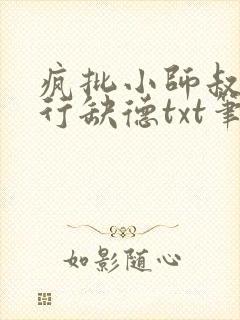 疯批小师叔
行缺德txt笔
如影随心